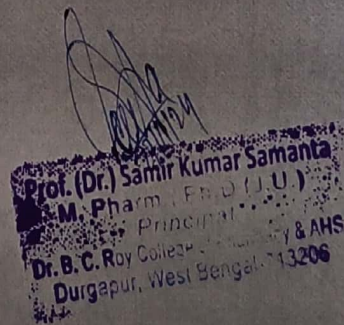 Prof. (Dr.) Samir Kumar Samanta
M. Pharm., Ph.D (J.U.)
Principal
Dr. B. C. Roy College & AHS
Durgapur, West Bengal-713206